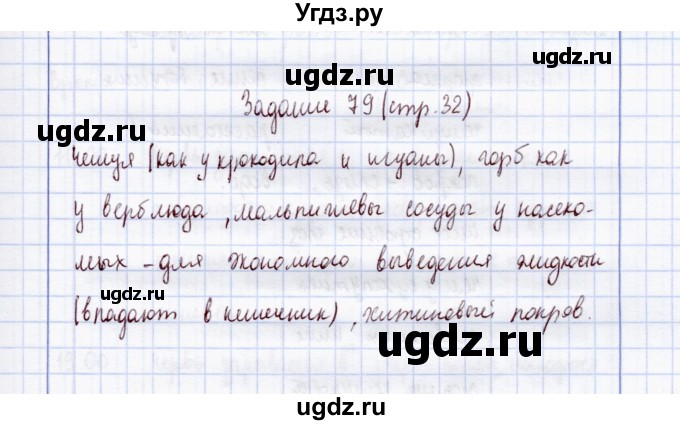 Угдз.ру
ugdz.ru
ugdz.ru
Задание 79 (стр. 32)
ugdz.ru
ugdz.ru
чешуя (как у крокодила и игуаны), горб как
ugdz.ru
у верблюда, мальпигиевы сосуды у насеко-
мых - для экономного выведения жидкости
ugdz.ru
(впадают в кишечник), хитиновый покров.
ugdz.ru
ugdz.ru
ugdz.ru